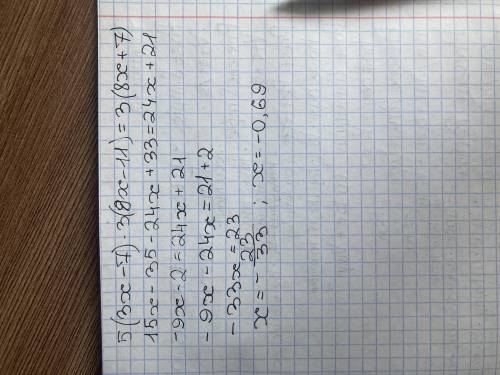 5(3x-7)-3(8x-11)=3(8x+7)
15x-35-24x+33=24x+21
-9x-2=24x+21
-9x-24x=21+2
-33x=23
x=-23/33 ; x=-0,69